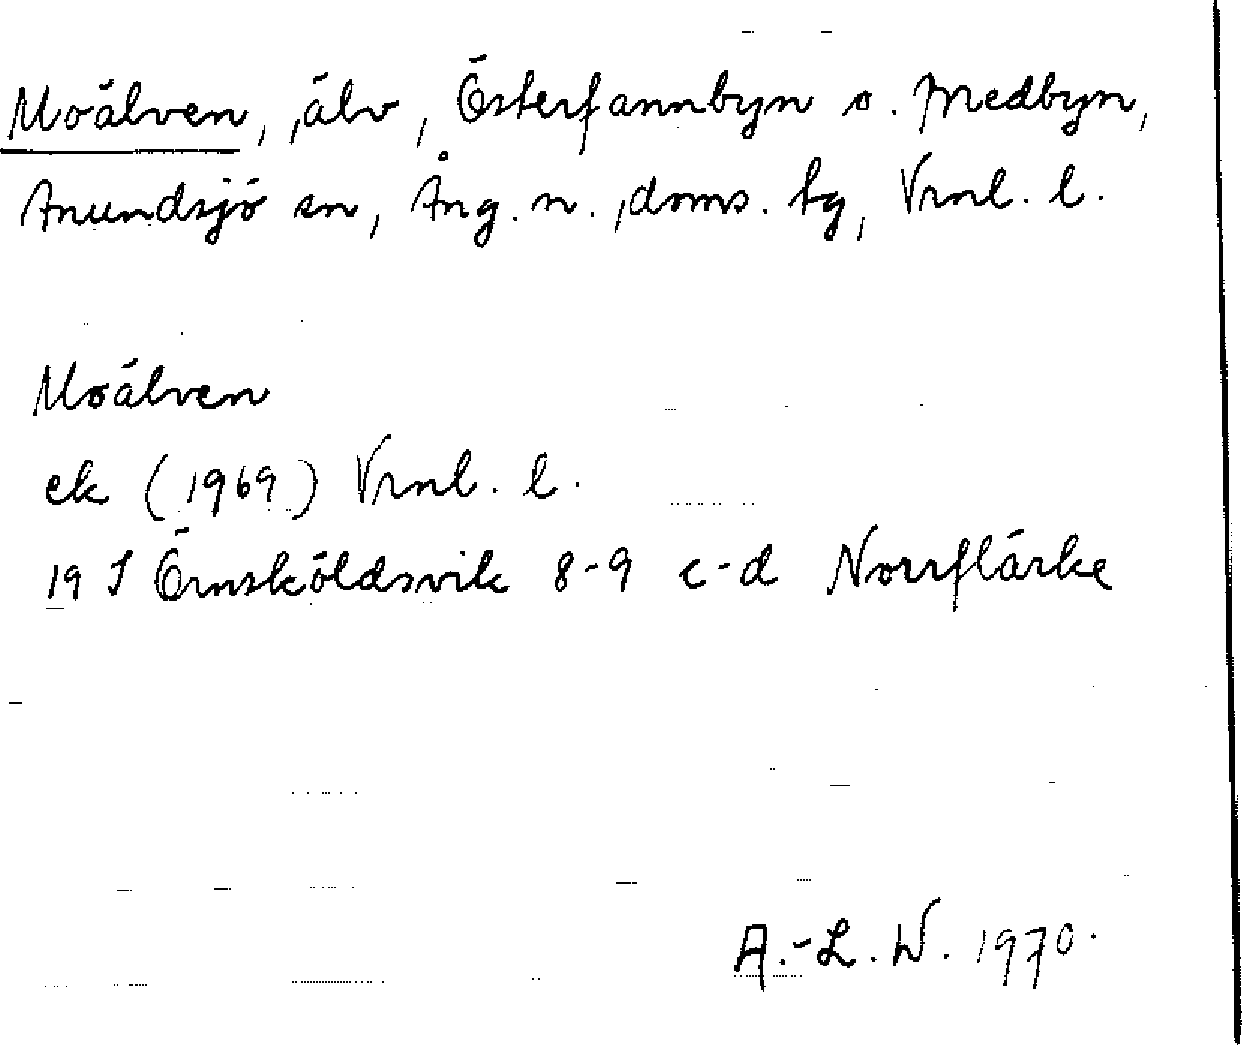 Moälven, älv, Österfannbyn o. Medbyn,
Anundsjö sn, Ång. n. doms. tg, Vrnl. l.
Moälven
ek (1969) Vrnl. l.
19 I Örnsköldsvik 8-9 c-d Norrflärke
A.-L. W. 1970.